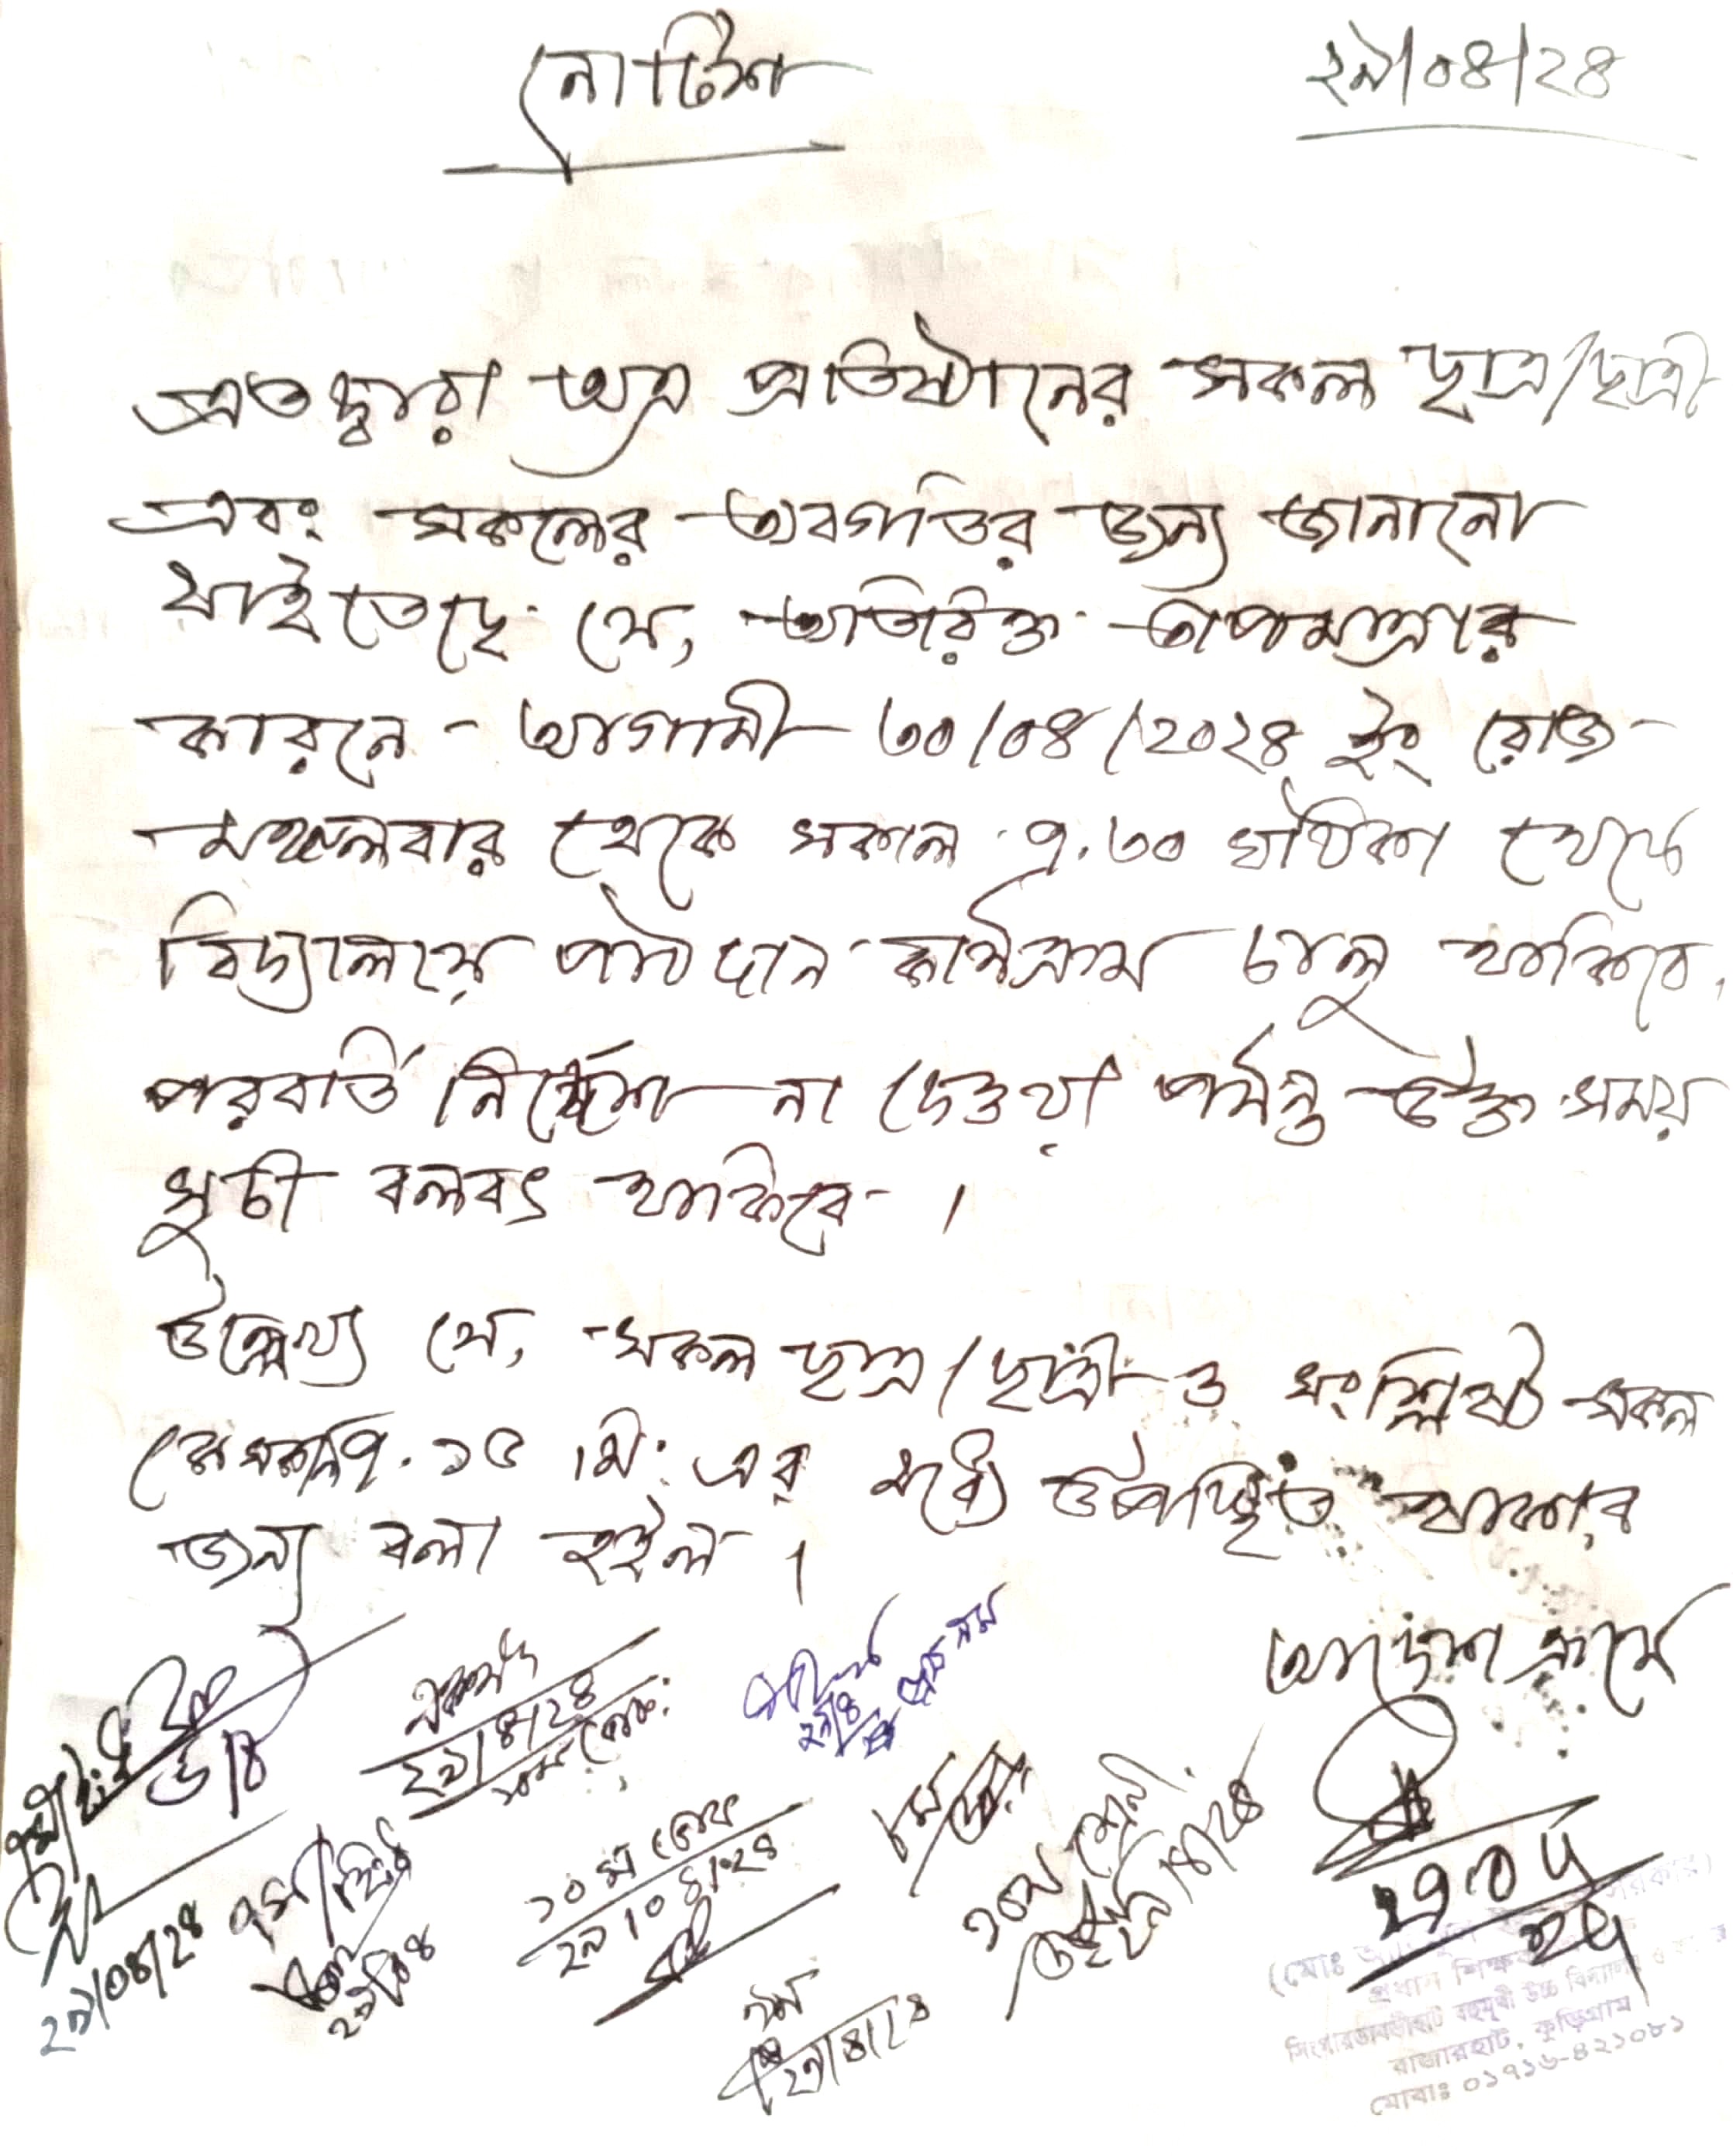 নোটিশ
২৯/০৪/২৪
এতদ্বারা অত্র প্রতিষ্ঠানের সকল ছাত্র/ছাত্রী
এবং সকলের অবগতির জন্য জানানো
যাইতেছে যে, অতিরিক্ত তাপমাত্রার
কারনে - আগামী ৩০/০৪/২০২৪ ইং রোজ
মঙ্গলবার থেকে সকাল ৭.৩০ ঘটিকা থেকে
বিদ্যালয়ে পাঠদান কার্যক্রম চালু থাকিবে,
পরবর্তি নির্দ্দেশ না দেওয়া পর্যন্ত উক্ত সময়
সুচী বলবৎ থাকিবে ।
উল্লেখ্য যে, সকল ছাত্র/ছাত্রী ও সংশ্লিষ্ট সকল
কে সকাল ৭.১৫ মি: এর মধ্যে উপস্থিত থাকার
জন্য বলা হইল ।
আদেশ ক্রমে
২৯/৪/২৪
২৯/০৪/২৪
১০ম
২৯/০৪/২৪
(মোঃ
প্রধান শিক্ষক
বহুমূখী উচ্চ বিদ্যালয়
রাজারহাট, কুড়িগ্রাম।
মোবাঃ ০১৭১৬-৪২১০৮১